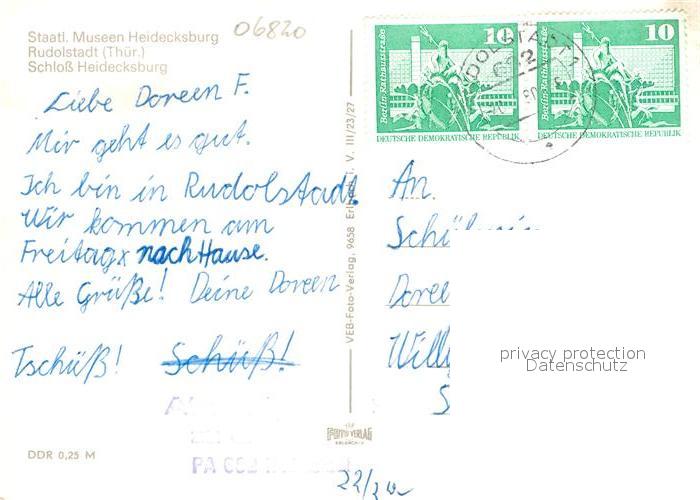 Staatl. Museen Heidecksburg
Rudolstadt (Thür.)
Schloß Heidecksburg
06820
Liebe Doreen F.
Mir geht es gut.
Ich bin in Rudolstadt.
Wir kommen am
Freitag nach Hause.
Alle Grüße! Deine Doreen
Tschüß! Schüß!
DDR 0,25 M
VEB-Foto-Verlag, 9658 V. III/23/27
FOTO VERLAG
10
Berlin-Rathausstraße
DEUTSCHE DEMOKRATISCHE REPUBLIK
10
Berlin-Rathausstraße
DEUTSCHE DEMOKRATISCHE REPUBLIK
An
Doree
Willy
privacy protection
Datenschutz